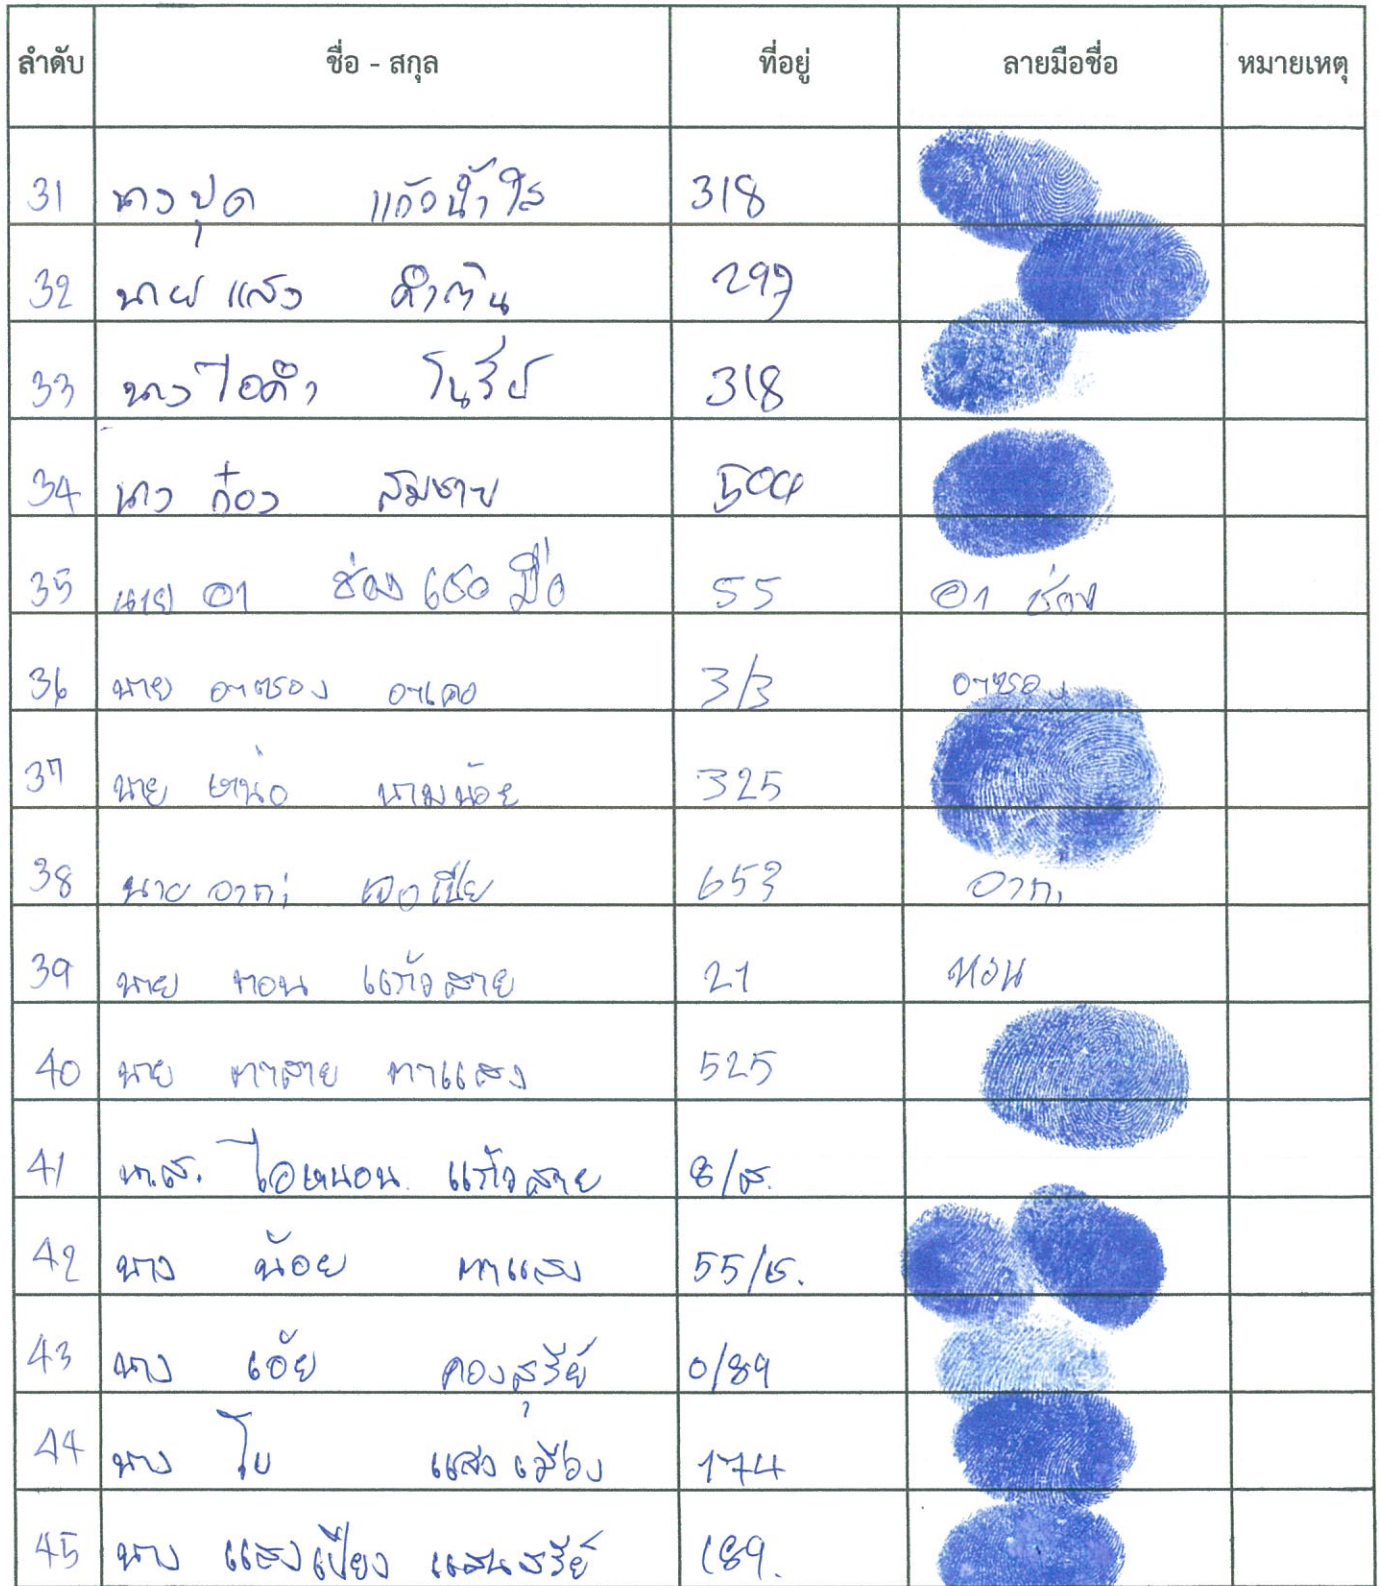 ลำดับ ชื่อ - สกุล ที่อยู่ ลายมือชื่อ หมายเหตุ
31 นางปุด แก้วน้ำใส 318
32 นาย แสง คำติน 299
33 นางไอคำ โนรีย์ 318
34 นาง ก๋อง สมชาย 504
35 นาย อา ช่อง เธอ มื่อ 55 อา ช่อง
36 นาย อาซอง อาเคอ 3/3 อาซอง
37 นาย เหน่อ นามน้อย 325
38 นาย อาก่ 653 อาก่
39 นาย ทอน แก้วสาย 21 ทอน
40 นาย ทาสาย ทาแสง 525
41 น.ส. ไอหนอน แก้วสาย 8/ส.
42 นาง น้อย ทาแสง 55/ส.
43 นาง เอ้ย คองสุรีย์ 0/89
44 นาง โบ แสงเมือง 174
45 นาง แสงเปียง แสนสรีย์ 189.